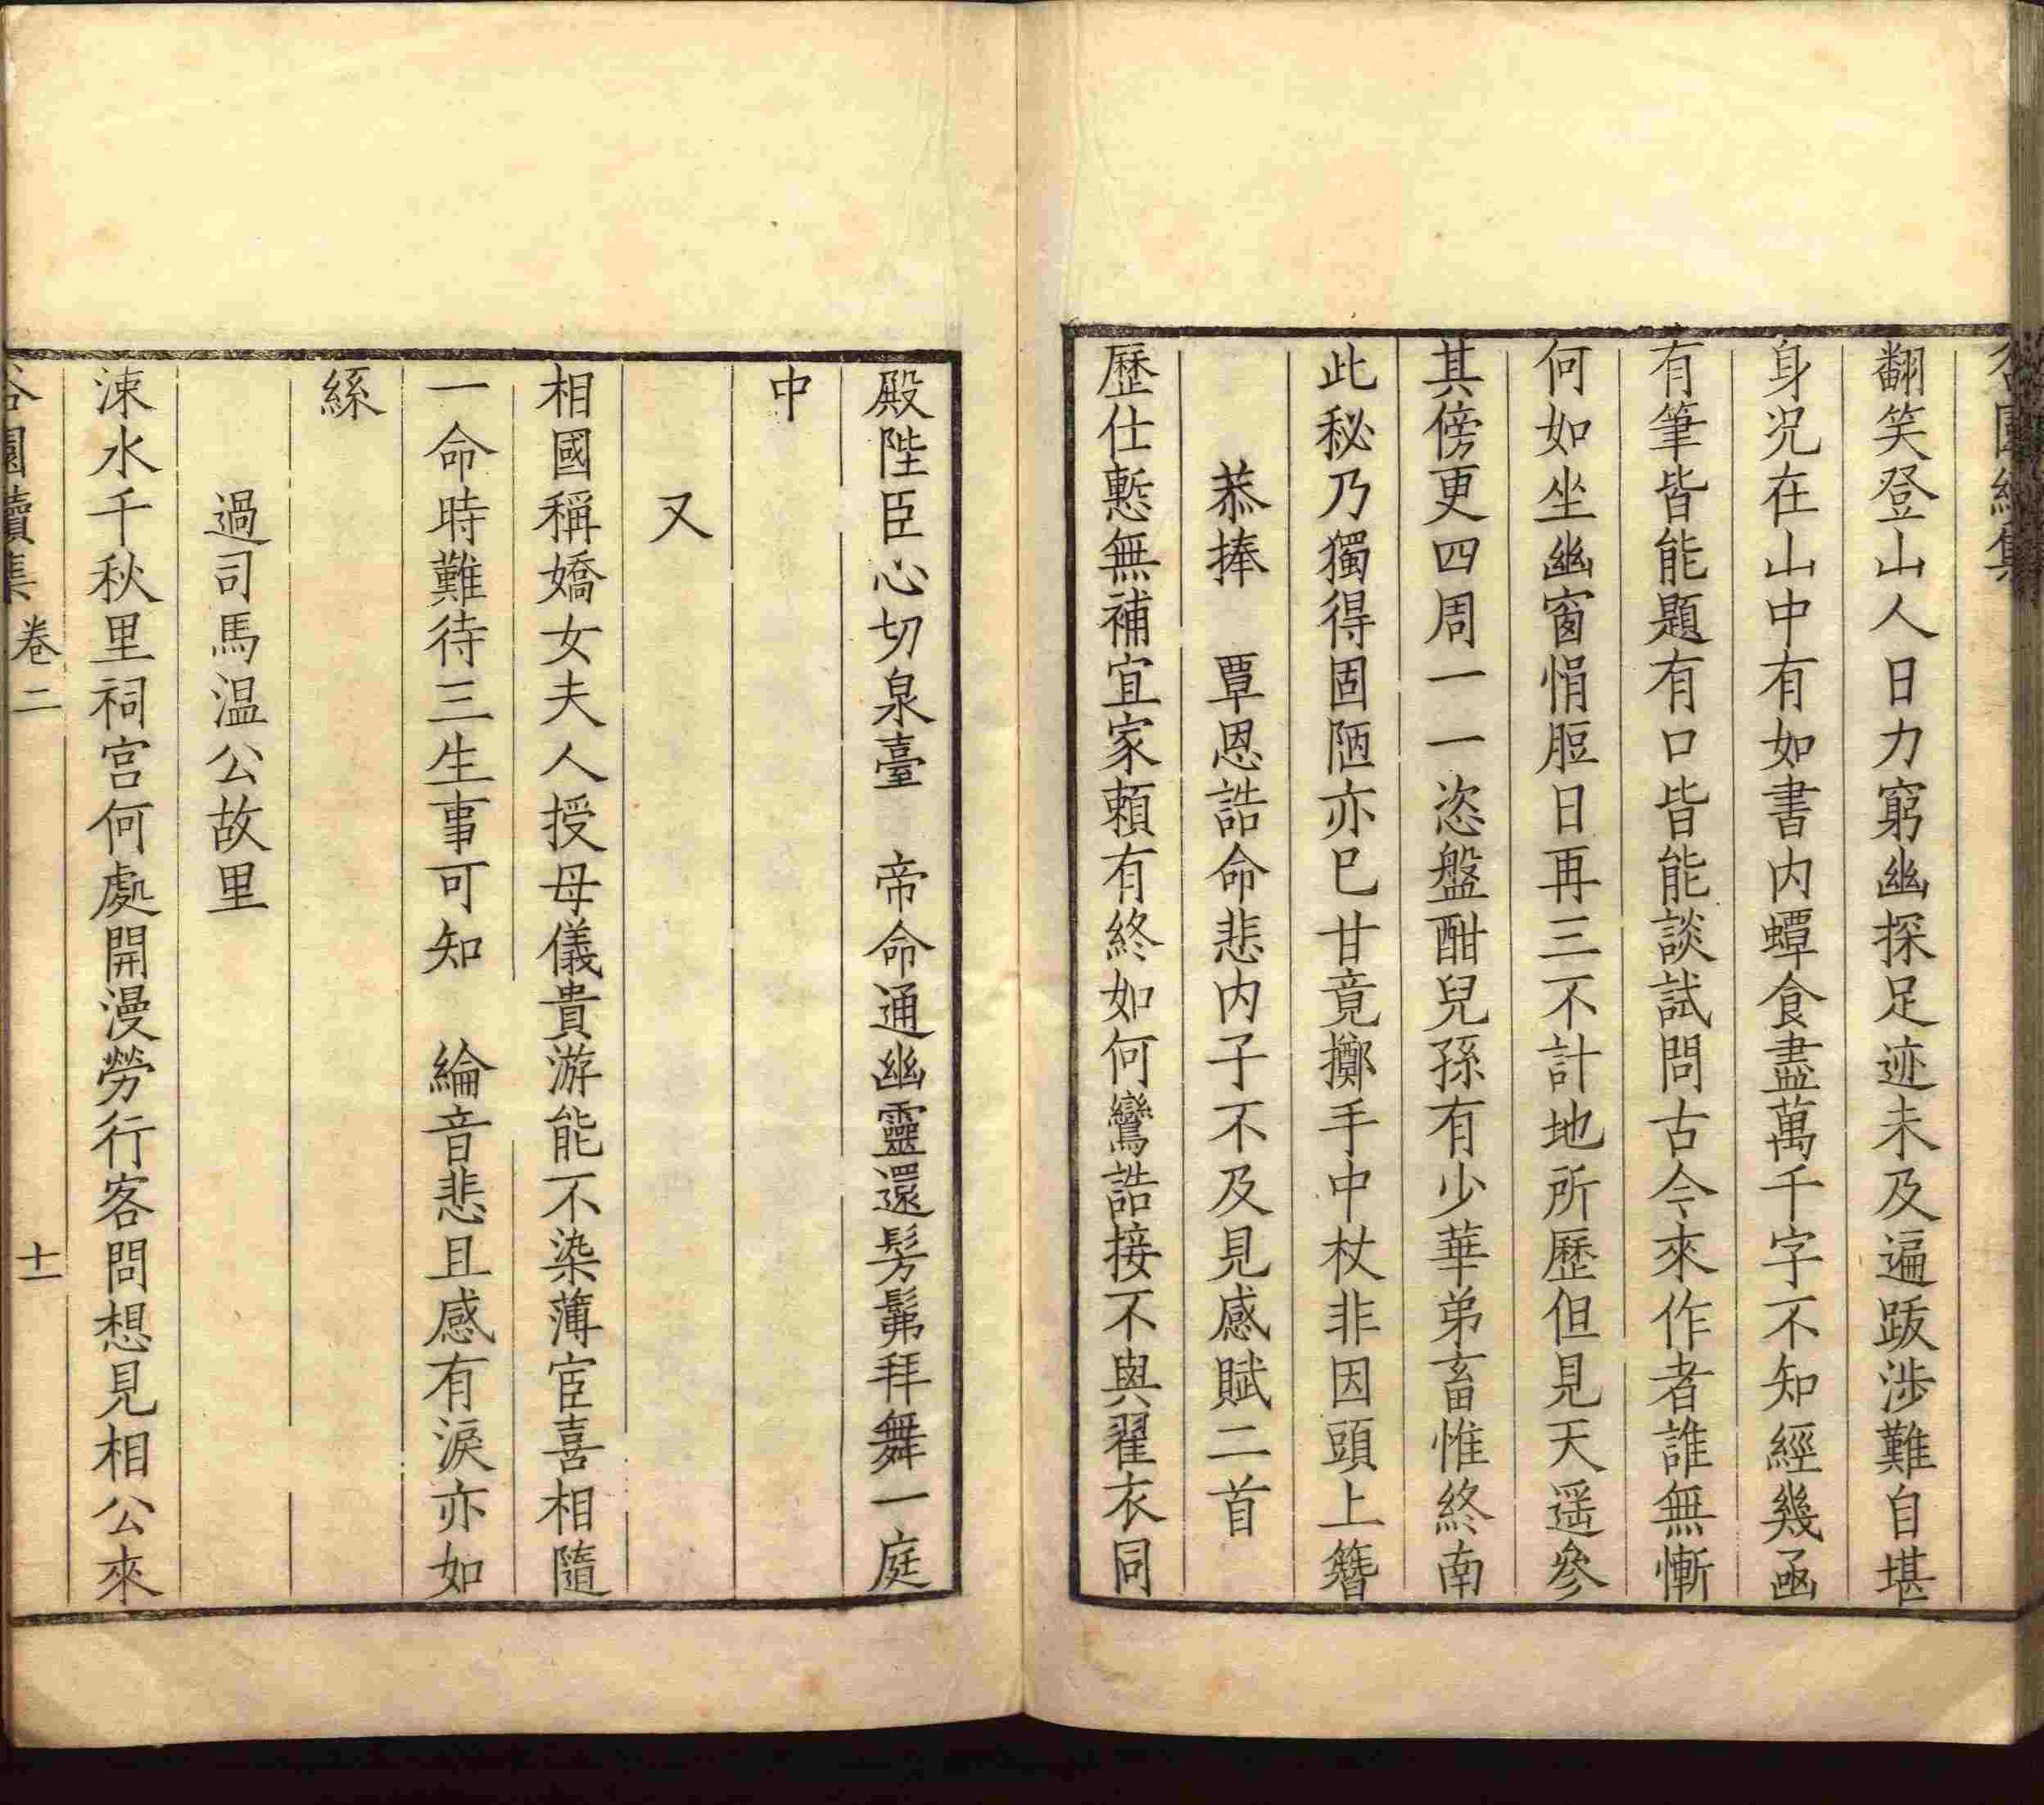 翻笑登山人日力窮幽探足迹未及遍跋涉難自堪
身况在山中有如書内蟫食盡萬千字不知經幾函
有筆皆能題有口皆能談試問古今來作者誰無慚
何如坐幽窗悁脰日再三不計地所歷但見天遥參
其傍更四周一一恣盤酣兒孫有少華弟畜惟終南
此秘乃獨得固陋亦已甘竟擲手中杖非因頭上簪
恭捧　覃恩誥命悲内子不及見感賦二首
歷仕慙無補宜家賴有終如何鸞誥接不與翟衣同
殿陛臣心切泉臺　帝命通幽靈還髣髴拜舞一庭
中
又
相國稱嬌女夫人授母儀貴游能不染薄宦喜相隨
一命時難待三生事可知　綸音悲且感有淚亦如
絲
過司馬温公故里
涑水千秋里祠宫何處開漫勞行客問想見相公來
園續集　卷二　十一